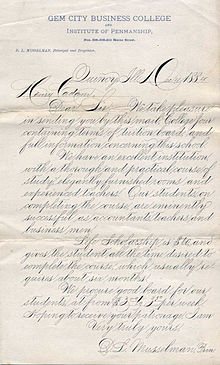 GEM CITY BUSINESS COLLEGE
AND
INSTITUTE OF PENMANSHIP,
D. L. MUSSELMAN, Principal and Proprietor.
Quincy, Ill.
Henry
Dear Sir:
We take pleasure
in sending you by this mail College Jour
containing terms of tuition board, and
full information concerning this school.
We have an excellent institution,
with a thorough and practical course of
study, elegantly furnished rooms, and
experienced teachers. Our students on
completing the course, are eminently
successful as accountants, teachers and
business men.
Life Scholarship is and
gives the student all the time desired to
complete the course, which usually re
quires about six months.
We procure good board for our
students, at from per week.
Hoping to receive your patronage, I am
Very truly yours,
D. L. Musselman, Prin